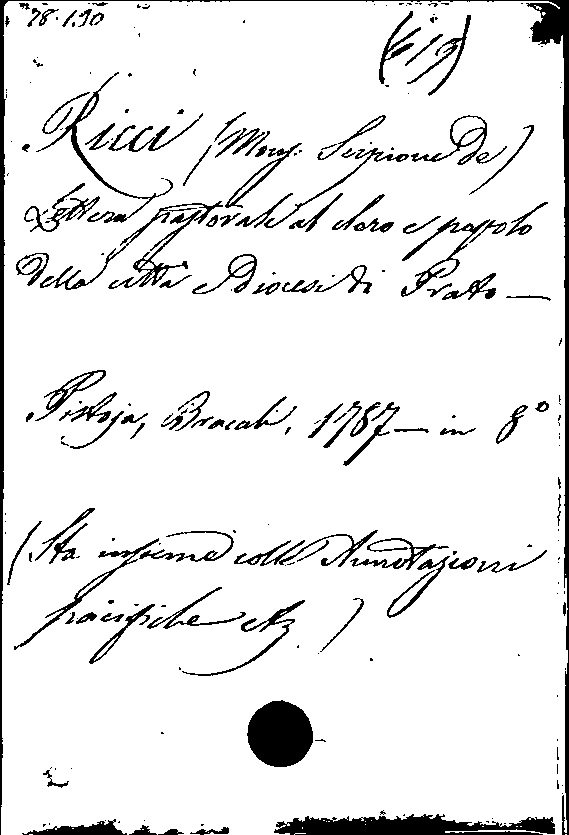 78.1.90
Ricci (Mons. Scipione De)
Lettera pastorale al clero e popolo
della città e Diocesi di Prato —
Pistoja, Bracali, 1787 — in 8°
(Sta insieme colle Annotazioni
pacifiche etz.)